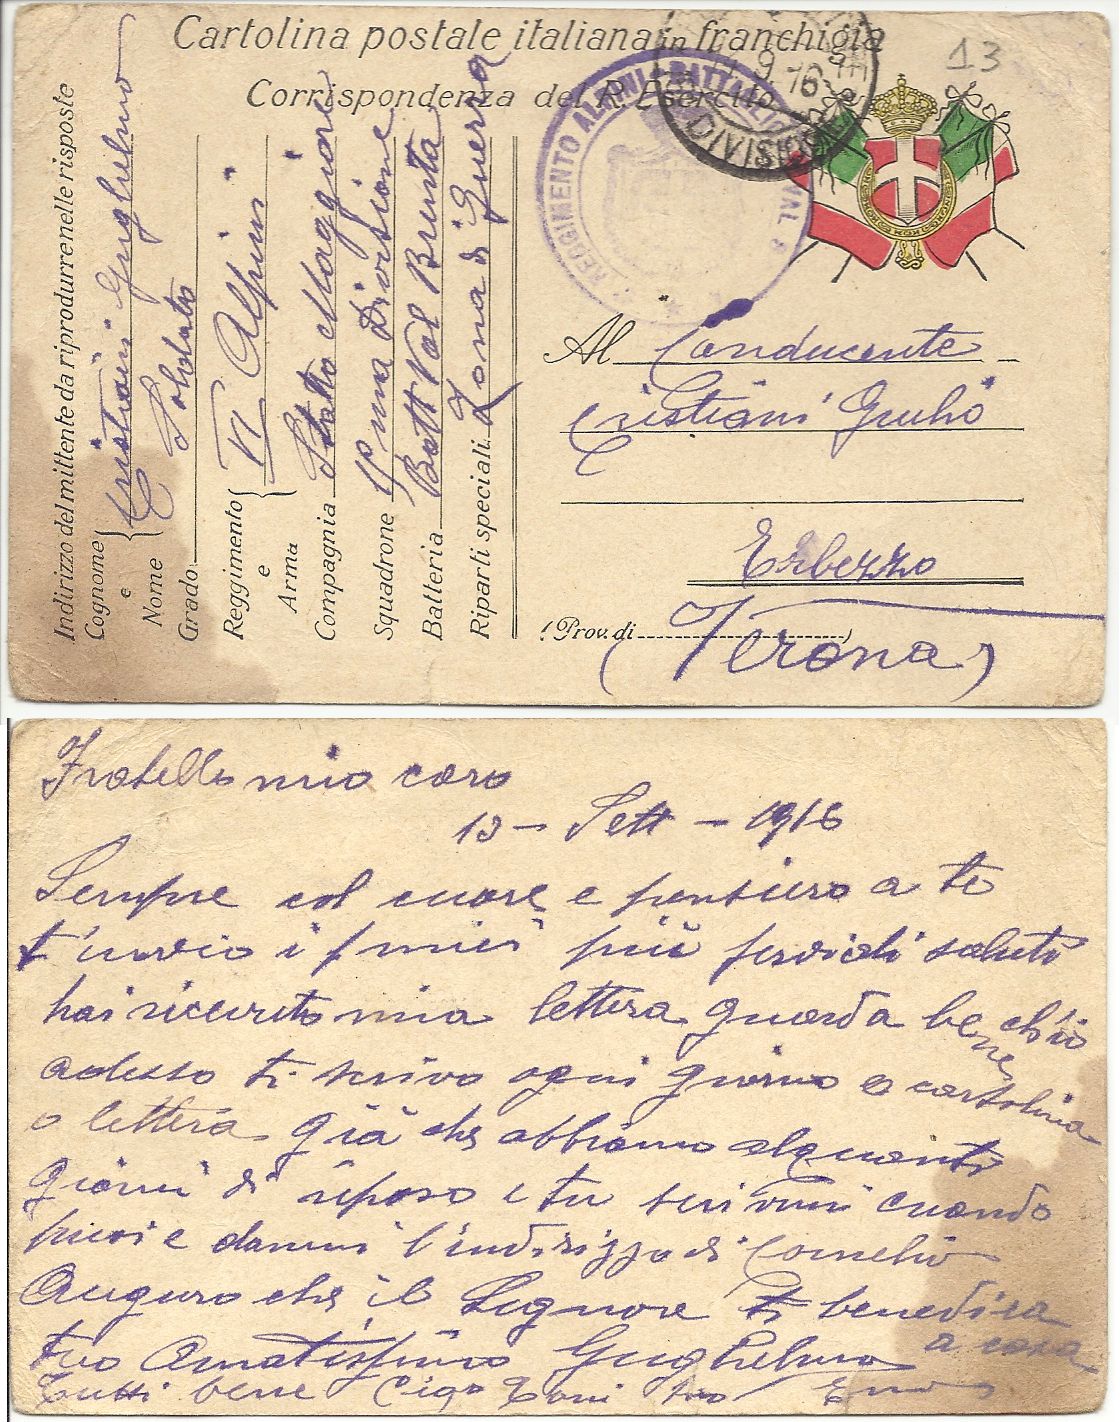 Cartolina postale italiana in franchigia
Corrispondenza del R. Esercito
13
9 16
DIVISIO
REGGIMENTO ALPINI BATTAGLIO
Indirizzo del mittente da riprodurre nelle risposte
Cognome e Nome { Cristiani Guglielmo
Grado Soldato
Reggimento e Arma { VI Alpini
Compagnia Stato Maggiore
Squadrone 1ª Divisione
Batteria Batt Val Brenta
Riparti speciali Zona di Guerra
Al Conducente
Cristiani Giulio
Erbezzo
(Prov. di
(Verona)
Fratello mio caro
13 - Sett - 1916
Sempre col cuore e pensiero a te
t'invio i miei più fervidi saluti
hai riceuto mia lettera guarda bene ch'io
adesso ti scrivo ogni giorno o cartolina
o lettera già che abbiamo alquanti
giorni di riposo e tu scrivimi cuando
puoi e dammi l'indirizzo di Cornelio
Auguro che il Signore ti benedica
tuo Amatissimo Guglielmo a casa
tutti bene Toni tuo